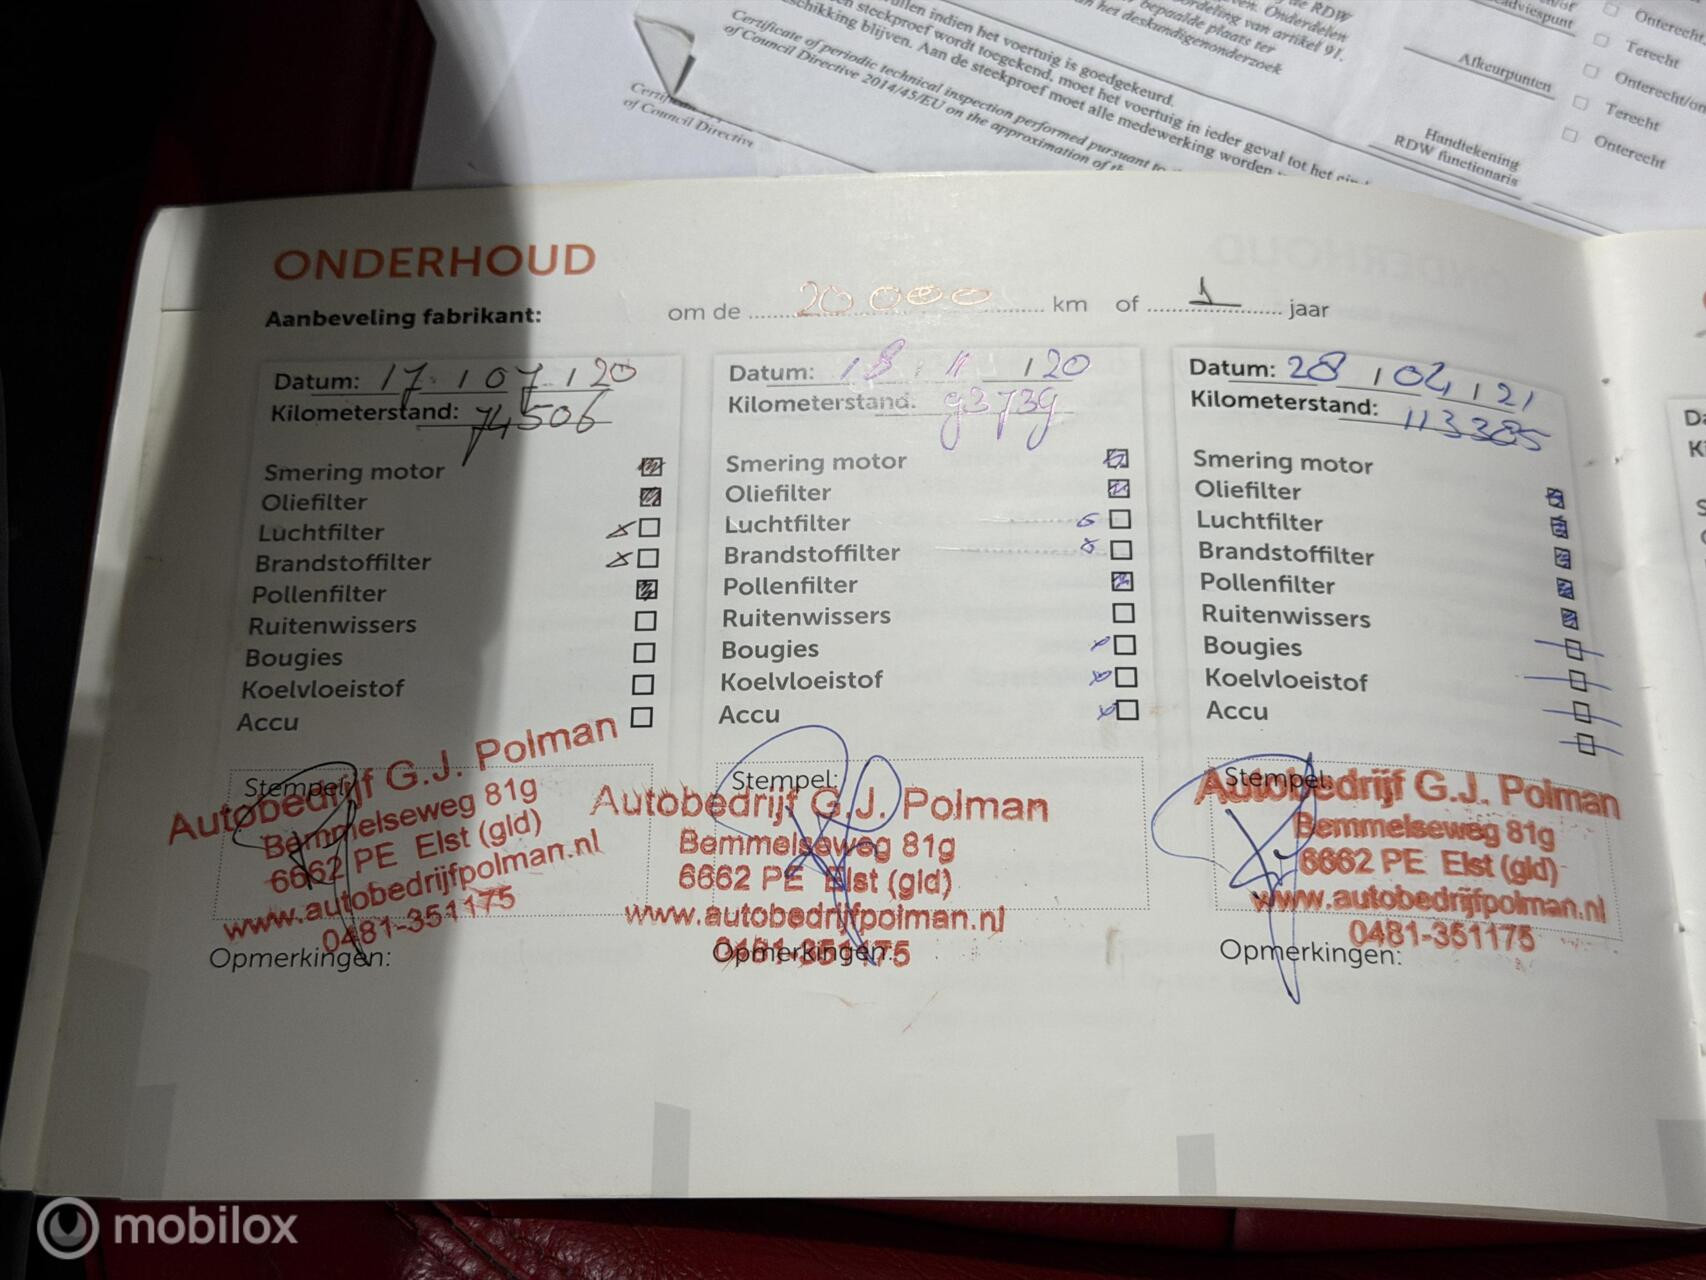 de RDW
ordeling van artikel 91.
vullen indien het voertuig is goedgekeurd.
een steekproef wordt toegekend, moet het voertuig in ieder geval tot het
schikking blijven. Aan de steekproef moet alle medewerking worden
bepaalde plaats ter
het deskundigenonderzoek
Certificate of periodic technical inspection performed pursuant to
of Council Directive 2014/45/EU on the approximation of
of Council Directive
adviespunt
Afkeurpunten
Handtekening
RDW functionaris
Onterecht
Terecht
Onterecht/on
Terecht
Onterecht
ONDERHOUD
Aanbeveling fabrikant: om de 20 000 km of 1 jaar
Datum: 17 / 07 / 20
Kilometerstand: 74506
Smering motor
Oliefilter
Luchtfilter
Brandstoffilter
Pollenfilter
Ruitenwissers
Bougies
Koelvloeistof
Accu
Stempel:
Autobedrijf G.J. Polman
Bemmelseweg 81g
6662 PE Elst (gld)
www.autobedrijfpolman.nl
0481-351175
Opmerkingen:
Datum: 18 / 11 / 20
Kilometerstand: 93739
Smering motor
Oliefilter
Luchtfilter
Brandstoffilter
Pollenfilter
Ruitenwissers
Bougies
Koelvloeistof
Accu
Stempel:
Autobedrijf G.J. Polman
Bemmelseweg 81g
6662 PE Elst (gld)
www.autobedrijfpolman.nl
0481-351175
Opmerkingen:
Datum: 28 / 04 / 21
Kilometerstand: 113385
Smering motor
Oliefilter
Luchtfilter
Brandstoffilter
Pollenfilter
Ruitenwissers
Bougies
Koelvloeistof
Accu
Stempel:
Autobedrijf G.J. Polman
Bemmelseweg 81g
6662 PE Elst (gld)
www.autobedrijfpolman.nl
0481-351175
Opmerkingen:
mobilox